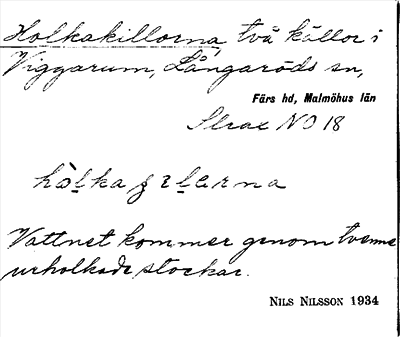 Holkakillorna, två källor i
Viggarum, Långaröds sn,
Färs hd, Malmöhus län
NO 18
Vattnet kommer genom tvenne
urholkade stockar.
NILS NILSSON 1934